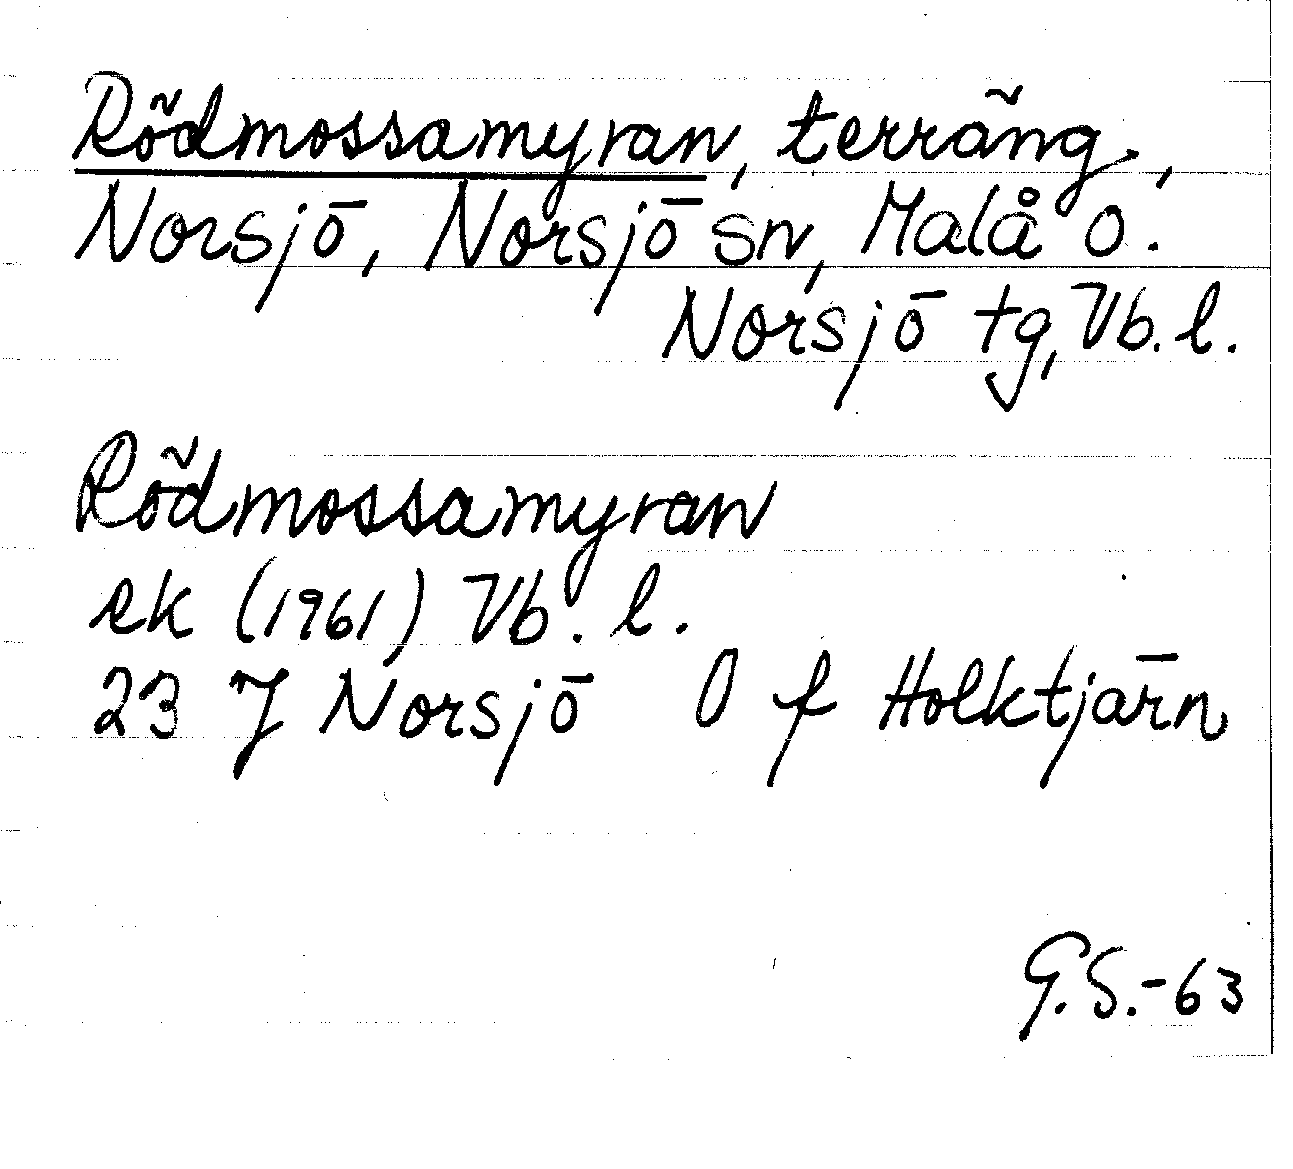 Rödmossamyran, terräng.,
Norsjö, Norsjö sn, Malå o.
Norsjö tg, Vb. l.
Rödmossamyran
ek (1961) Vb. l.
23 J Norsjö O f Holktjärn
G.S.-63